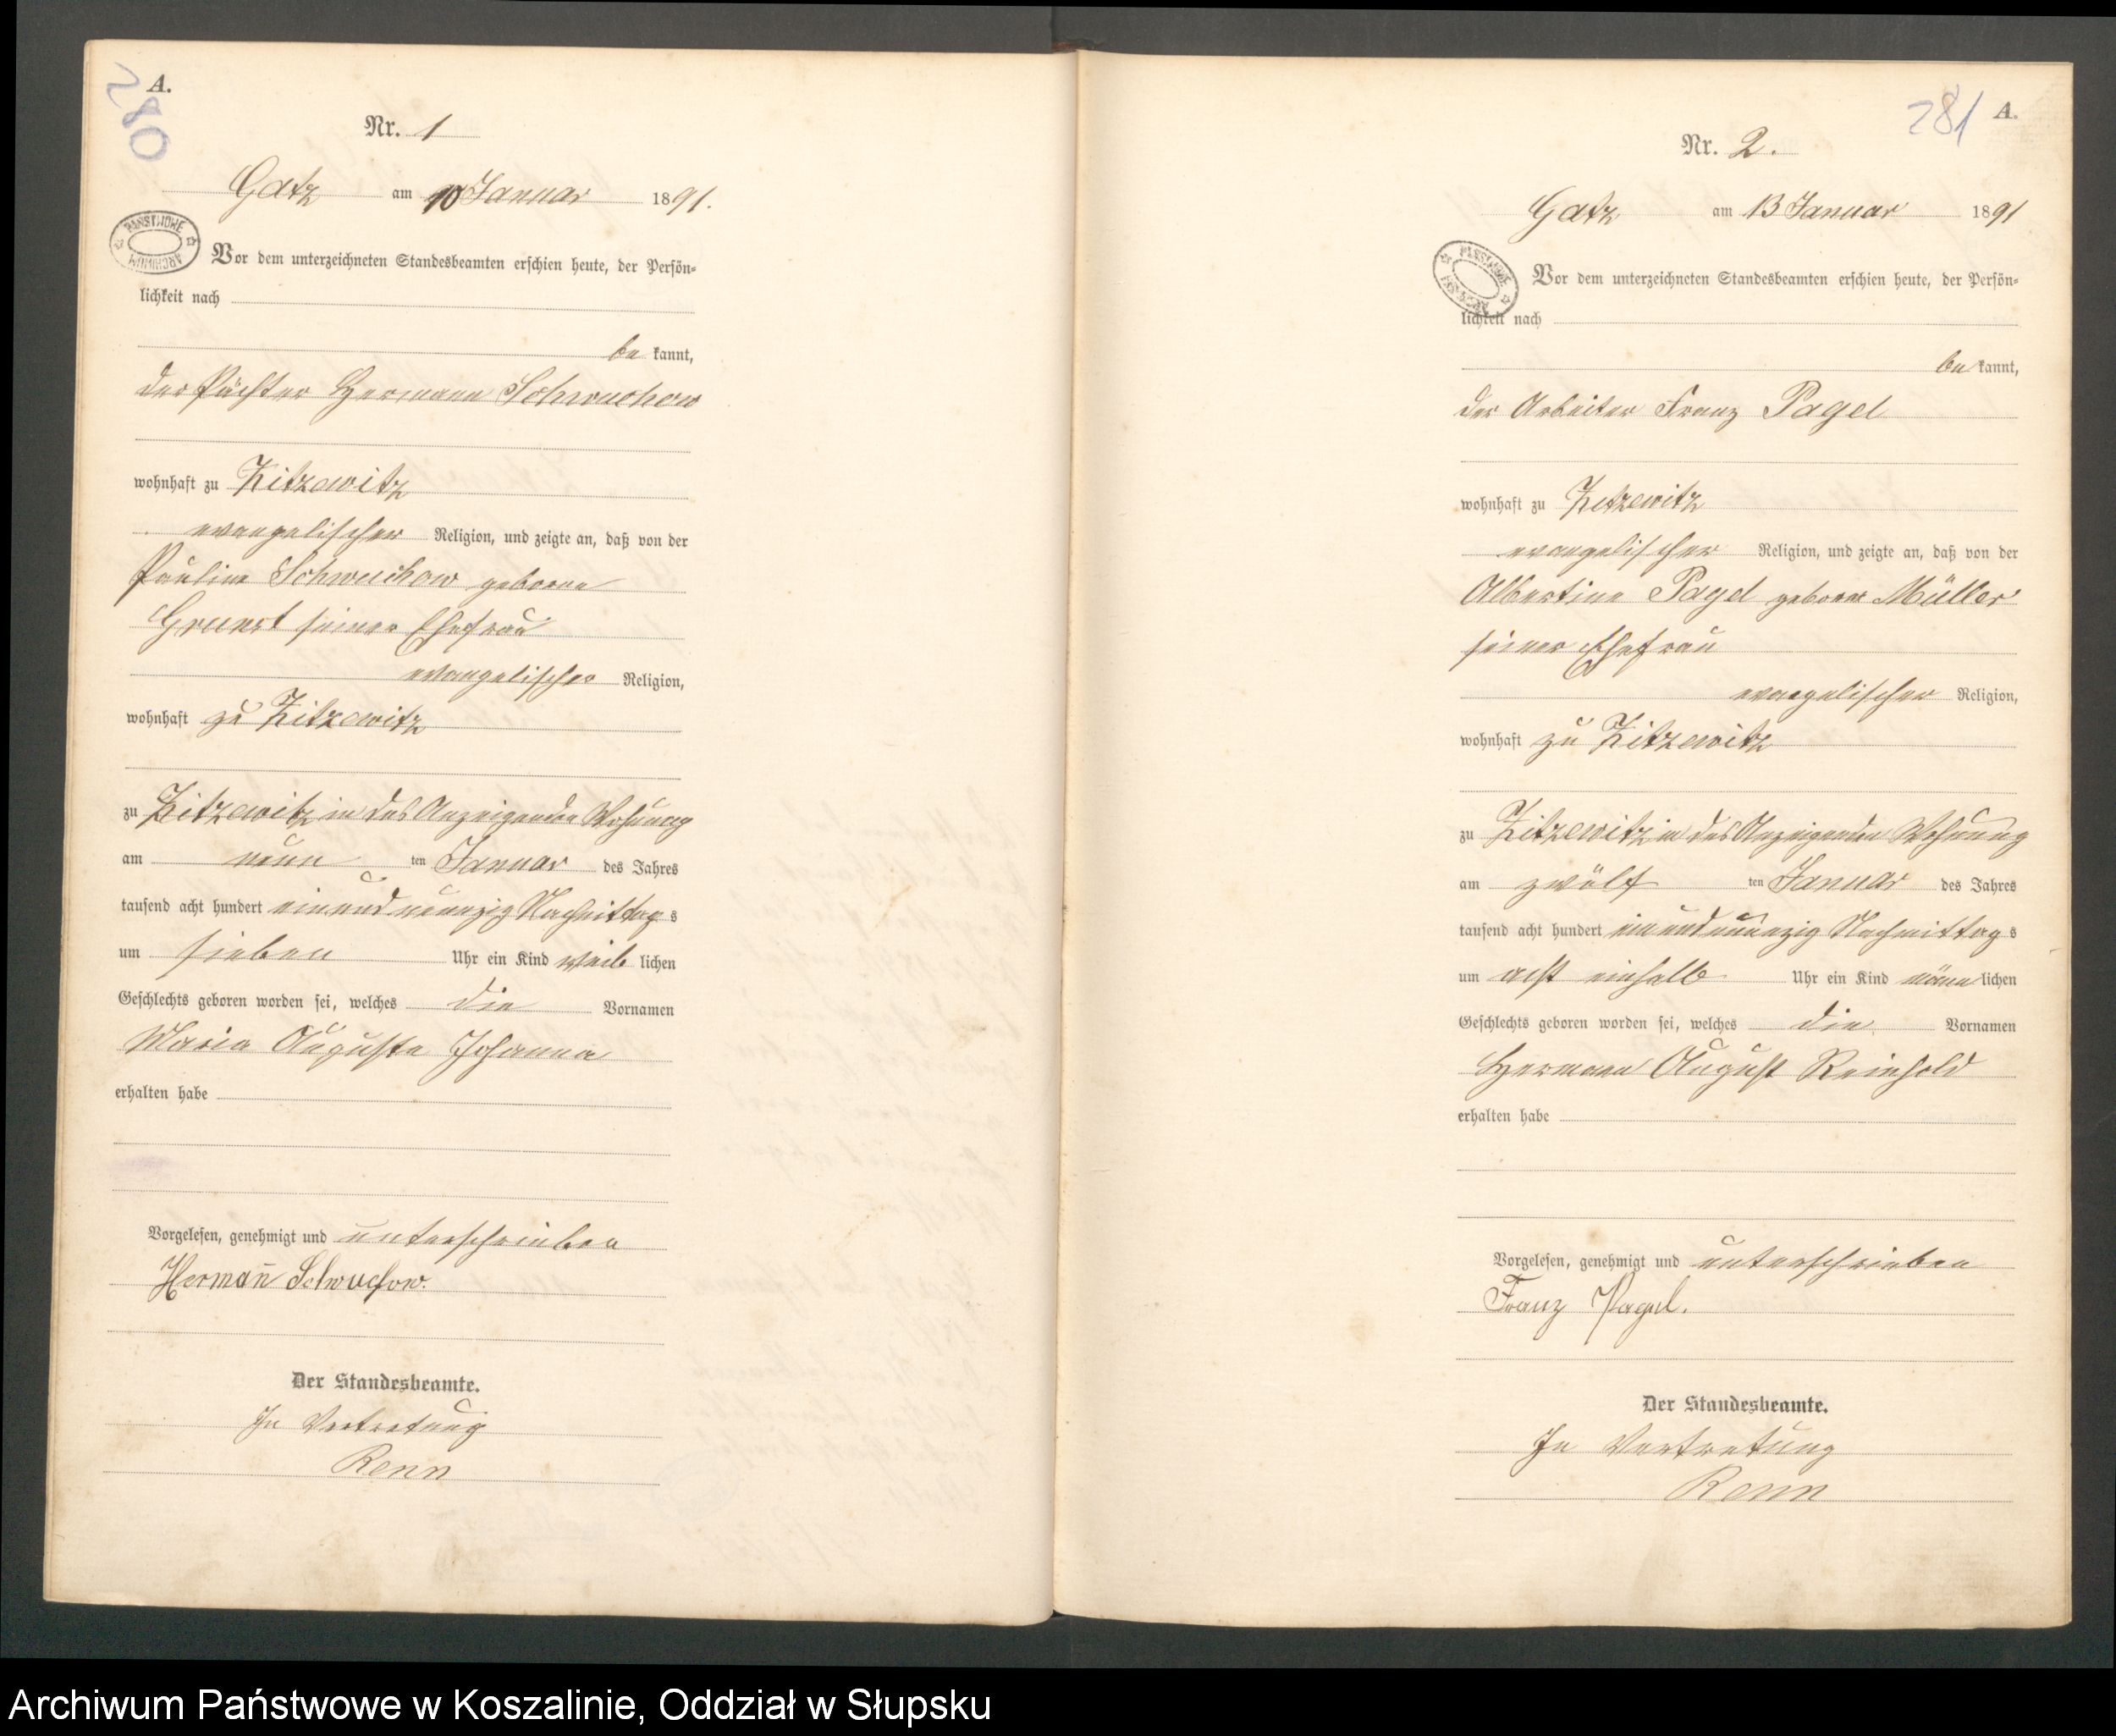 280
A.
Nr. 1
Gatz am 10 Januar 1891.
PAŃSTWOWE ARCHIWUM
Vor dem unterzeichneten Standesbeamten erschien heute, der Persön-
lichkeit nach
be kannt,
der Pächter Hermann Schwuchow
wohnhaft zu Zitzewitz
evangelischer Religion, und zeigte an, daß von der
Pauline Schwuchow geborne
Grunst seiner Ehefrau
evangelischer Religion,
wohnhaft zu Zitzewitz
zu Zitzewitz in des Anzeigenden Wohnung
am neun ten Januar des Jahres
tausend acht hundert einundneunzig Nachmittag s
um sieben Uhr ein Kind weib lichen
Geschlechts geboren worden sei, welches die Vornamen
Maria Auguste Johanna
erhalten habe
Vorgelesen, genehmigt und unterschrieben
Herman̄ Schwuchow.
Der Standesbeamte.
In Vertretung
Renn
281 A.
Nr. 2.
Gatz am 13 Januar 1891
PAŃSTWOWE ARCHIWUM
Vor dem unterzeichneten Standesbeamten erschien heute, der Persön-
lichkeit nach
be kannt,
der Arbeiter Franz Pagel
wohnhaft zu Zitzewitz
evangelischer Religion, und zeigte an, daß von der
Albertine Pagel geborne Müller
seiner Ehefrau
evangelischer Religion,
wohnhaft zu Zitzewitz
zu Zitzewitz in des Anzeigenden Wohnung
am zwölf ten Januar des Jahres
tausend acht hundert einundneunzig Nachmittag s
um acht einhalb Uhr ein Kind männ lichen
Geschlechts geboren worden sei, welches die Vornamen
Hermann August Reinhold
erhalten habe
Vorgelesen, genehmigt und unterschrieben
Franz Pagel.
Der Standesbeamte.
In Vertretung
Renn
Archiwum Państwowe w Koszalinie, Oddział w Słupsku